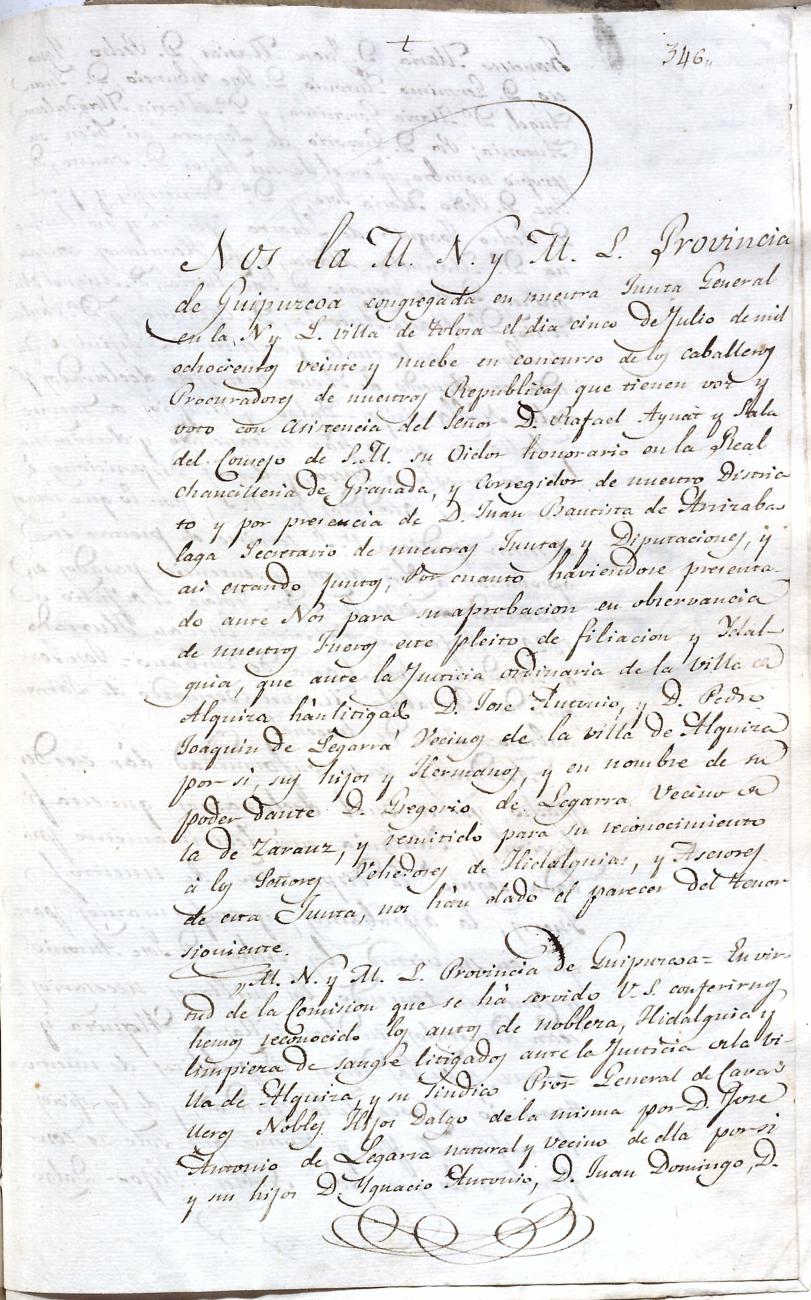 346,,
Nos la M. N. y M. L. Provincia
de Guipuzcoa congregada en nuestra Junta General
en la N y L. villa de tolosa el dia cinco de Julio de mil
ochocientos veinte y nuebe en concurso de los caballeros
Procuradores de nuestras Republicas que tienen voz y
voto con asistencia del Señor D. Rafael Aynat y Sala
del Consejo de S.M. su Oidor honorario en la Real
chancilleria de Granada, y Corregidor de nuestro Distric
to y por presencia de D. Juan Bautista de Arrizaba
laga Secretario de nuestras Juntas y Diputaciones, y
asi estando juntos; Por cuanto haviendose presenta-
do ante Nos para su aprobacion en observancia
de nuestros Fueros este pleito de filiacion y Ydal-
guia, que ante la Justicia ordinaria de la villa de
Alquiza hàn litigado D. Jose Antonio, y D. Pedro
Joaquin de Legarra Vecinos de la villa de Alquiza
por si, sus hijos y Hermanos, y en nombre de su
poder dante D. Gregorio de Legarra Vecino de
la de Zarauz, y remitido para su reconocimiento
à los Señores Vehedores de Hidalguias, y Asesores
de esta Junta, nos hàn dado el parecer del tenor
siguiente.
,,M. N. y M. L. Provincia de Guipuzcoa = En vir-
tud de la Comision que se hà servido V.S. conferirnos
hemos reconocido los autos de nobleza, Hidalguia y
limpieza de sangre litigados ante la Justicia de la vi-
lla de Alquiza, y su Sindico Pror General de Cava-
lleros Nobles Hijos Dalgo de la misma por D. Jose
Antonio de Legarra natural y vecino de ella por si
y sus hijos D. Ygnacio Antonio, D. Juan Domingo, D.